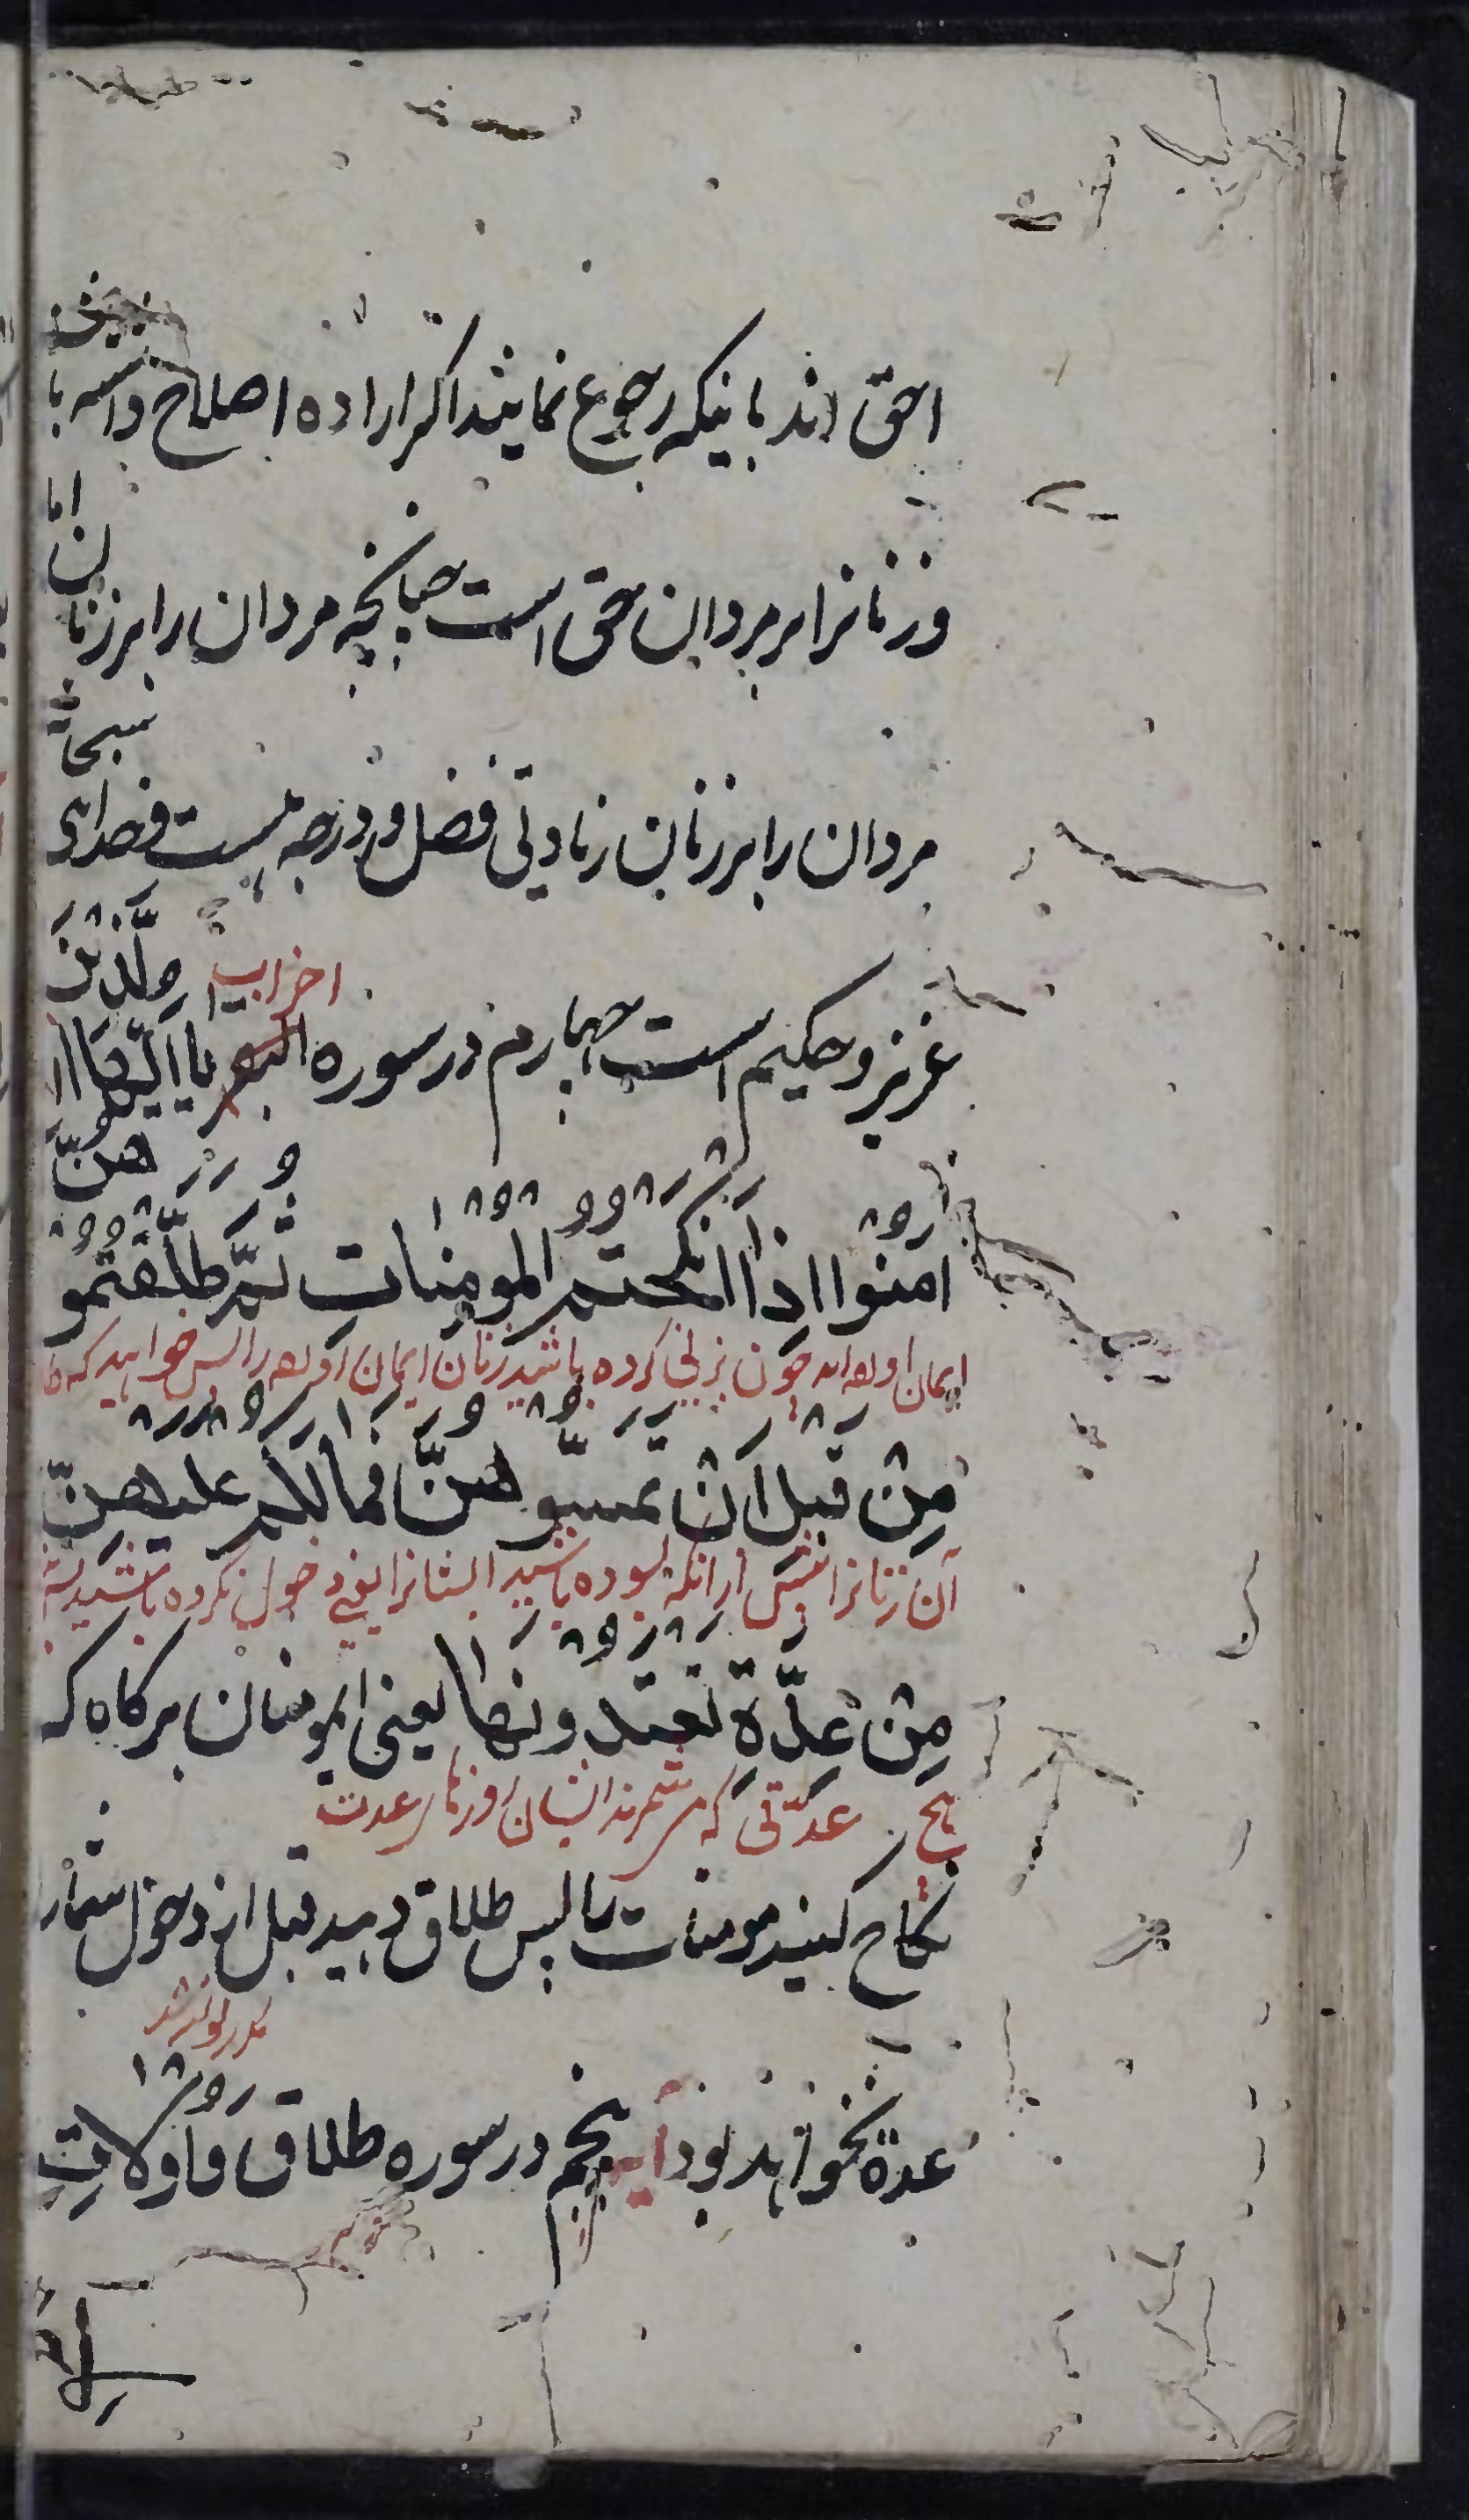 احق اند باینکه رجوع نمایند اگر اراده اصلاح داشته با
وزنانرا بر مردان حق است چنانچه مردان را بر زنان اما
مردان را بر زنان زیادتی فضل و درجه هست و خدای سبحانه
احزاب
عزیز و حکیم است چهارم در سوره البقر یا ایّها الَّذِیْنَ
اٰمَنُوا اِذَا نَكَحْتُم المُؤْمِنَاتِ ثُمَّ طَلَّقْتُمُوهُنَّ
ایمان چون بزنی کرده باشید زنان ایمان خواهید که
مِنْ قَبْلِ اَنْ تَمَسُّوهُنَّ فَمَا لَكُمْ عَلَیْهِنَّ
آن زنانرا پیش از آنکه بسوده باشید ایشانرا یعنی دخول نکرده باشید
مِنْ عِدَّةٍ تَعْتَدُّونَهَا یعنی ای مومنان هرکاه که
هیچ عدّتی که شمرند ایشان روزها عدت
نکاح کنید مومنات را پس طلاق دهید قبل از دخول شمارا
عدة نخواهد بود آیه پنجم در سوره طلاق وَاُولَاتِ